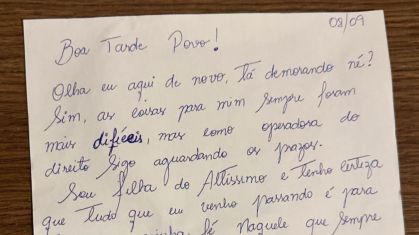 08/09
Boa Tarde Povo!
Olha eu aqui de novo, tá demorando né?
Sim, as coisas para mim sempre foram
mais difíceis, mas como operadora do
direito sigo aguardando os prazos.
Sou filha do Altíssimo e tenho certeza
que tudo que eu venho passando é para
minha fé naquele que sempre